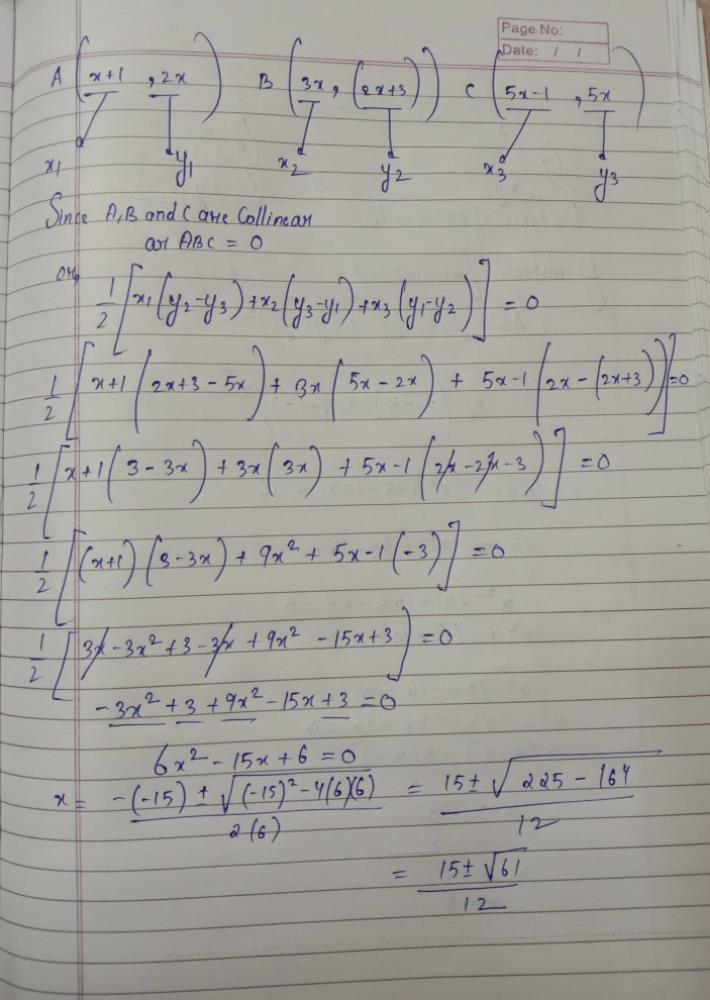 Page No:
Date: / /
A (x+1, 2x) B (3x, (2x+3)) C (5x-1, 5x)
x₁ y₁ x₂ y₂ x₃ y₃
Since A, B and C are Collinear
ar ABC = 0
or,
1/2 [x₁(y₂-y₃) + x₂(y₃-y₁) + x₃(y₁-y₂)] = 0
1/2 [x+1(2x+3-5x) + 3x(5x-2x) + 5x-1(2x-(2x+3))] = 0
1/2 [x+1(3-3x) + 3x(3x) + 5x-1(2x-2x-3)] = 0
1/2 [(x+1)(3-3x) + 9x² + 5x-1(-3)] = 0
1/2 [3x-3x²+3-3x+9x²-15x+3] = 0
-3x²+3+9x²-15x+3=0
6x²-15x+6=0
x = (-(-15) ± √((-15)²-4(6)(6)))/2(6) = (15 ± √(225-164))/12
= (15 ± √61)/12